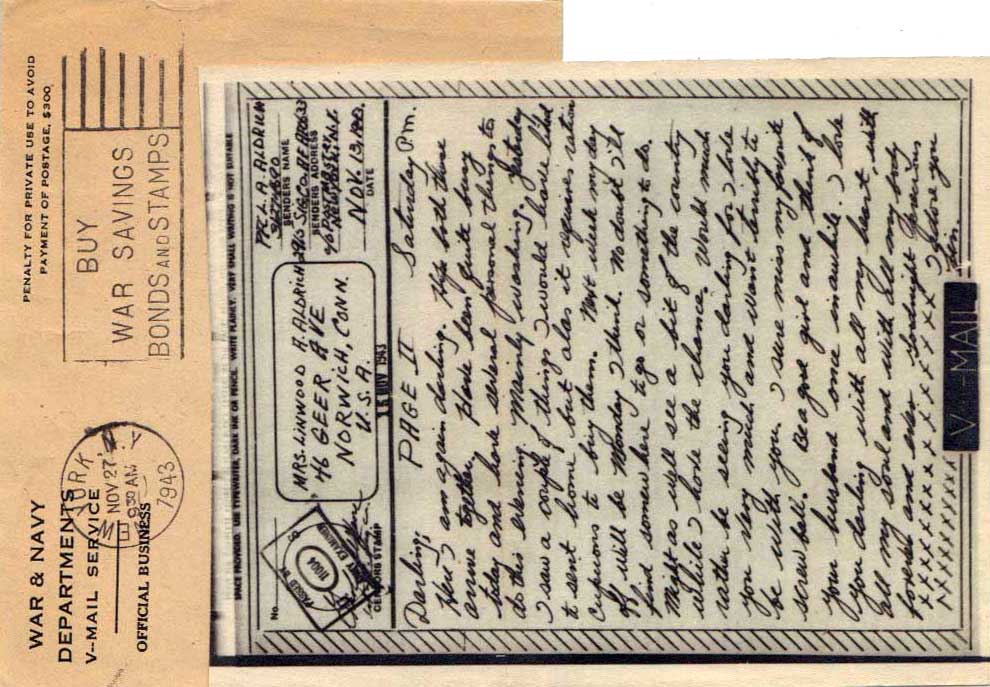 WAR & NAVY
DEPARTMENTS
V--MAIL SERVICE
OFFICIAL BUSINESS
PENALTY FOR PRIVATE USE TO AVOID
PAYMENT OF POSTAGE, $300
YORK
N.Y
NOV 27
9 30 AM
1943
BUY
WAR SAVINGS
BONDS AND STAMPS
SPACE PROVIDED. USE TYPEWRITER, DARK INK OR PENCIL. WRITE PLAINLY. VERY SMALL WRITING IS NOT SUITABLE
No.
PASSED BY
ARMY EXAMINER
CENSORS STAMP
MRS. LINWOOD A. ALDRICH
46 GEER AVE
NORWICH, CONN.
U.S.A.
15 NOV 1943
PFC L. A. ALDRICH
SENDERS NAME
SENDERS ADDRESS
NOV. 13, 1943
DATE
PAGE II Saturday Pm.
Darling;
Here I am again darling. Have both these
arms together. Have been quite busy
today and have several personal things to
do this evening. Mainly washing. Yesterday
I saw a couple of things I would have liked
to sent home but alas it requires ration
cupons to buy them. Next week my day
off will be Monday I think. No doubt I'll
find somewhere to go or something to do.
Might as well see a bit of the country
while I have the chance. Would much
rather be seeing you darling for I love
you very much and want terribly to
be with you. I sure miss my favorite
screw ball. Be a good girl and think of
your husband once in awhile. I love
you darling with all my heart, with
all my soul and with all my body
forever and ever. Goodnight Precious
xxxxxxxxxxxxxxx I adore you
xxxxxxxxxx Lin.
V--MAIL